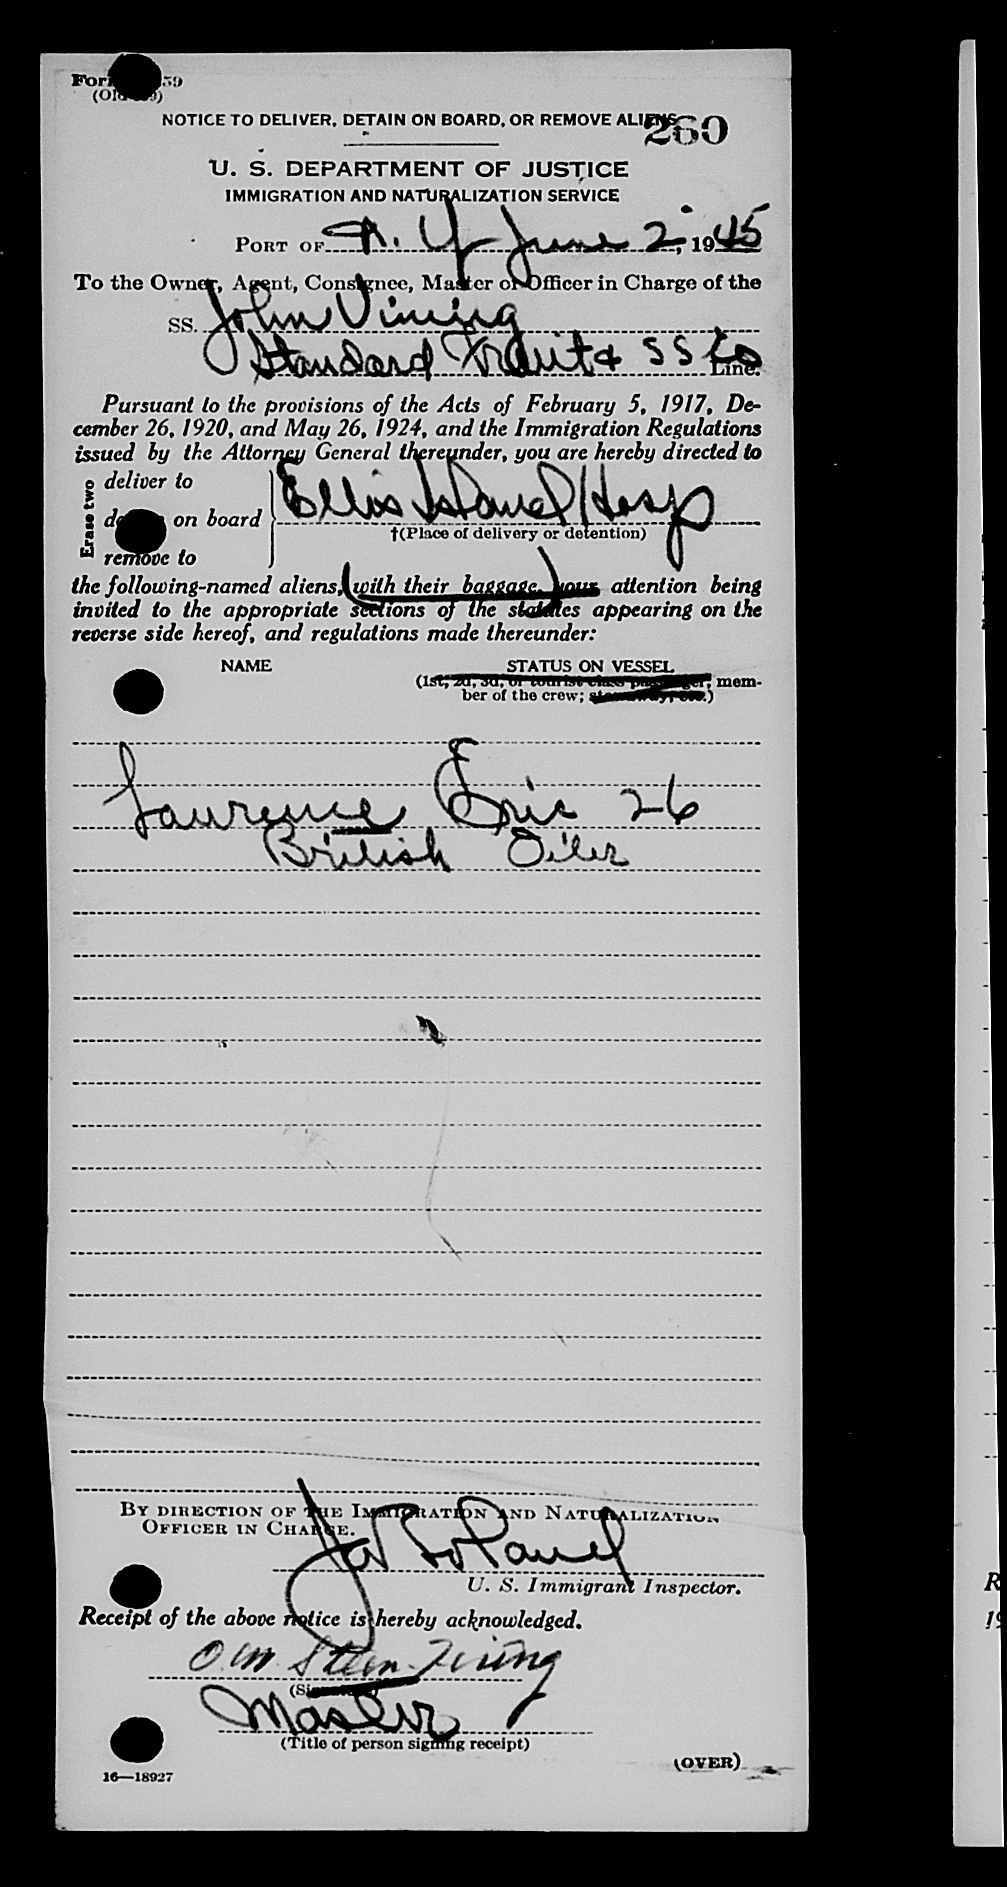 NOTICE TO DELIVER, DETAIN ON BOARD, OR REMOVE ALIENS
260
U. S. DEPARTMENT OF JUSTICE
IMMIGRATION AND NATURALIZATION SERVICE
PORT OF N. Y June 2, 1945
To the Owner, Agent, Consignee, Master or Officer in Charge of the
SS. John Vining
Standard Fruit & SS Co Line.
Pursuant to the provisions of the Acts of February 5, 1917, De-
cember 26, 1920, and May 26, 1924, and the Immigration Regulations
issued by the Attorney General thereunder, you are hereby directed to
Erase two
deliver to
on board
remove to
Ellis Island Hosp
†(Place of delivery or detention)
the following-named aliens, (with their baggage,) your attention being
invited to the appropriate sections of the statutes appearing on the
reverse side hereof, and regulations made thereunder:
NAME STATUS ON VESSEL
(1st, 2d, 3d, or tourist class passenger; mem-
ber of the crew; stowaway, etc.)
Laurence Eric 26
British Oiler
BY DIRECTION OF THE IMMIGRATION AND NATURALIZATION
OFFICER IN CHARGE.
U. S. Immigrant Inspector.
Receipt of the above notice is hereby acknowledged.
(Signature)
Master
(Title of person signing receipt)
(OVER)
16—18927